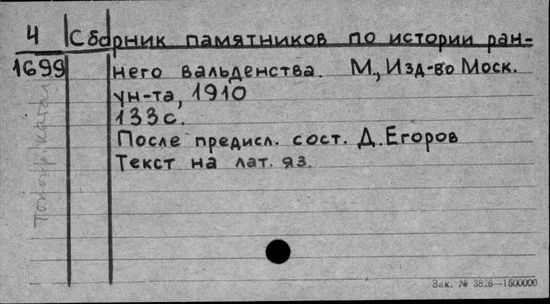 4 Сборник памятников по истории ран-
1699 него вальденства. М., Изд-во Моск.
ун-та, 1910
133 с.
После предисл. сост. Д. Егоров
Текст на лат. яз.
Зак. № 3826—1500000